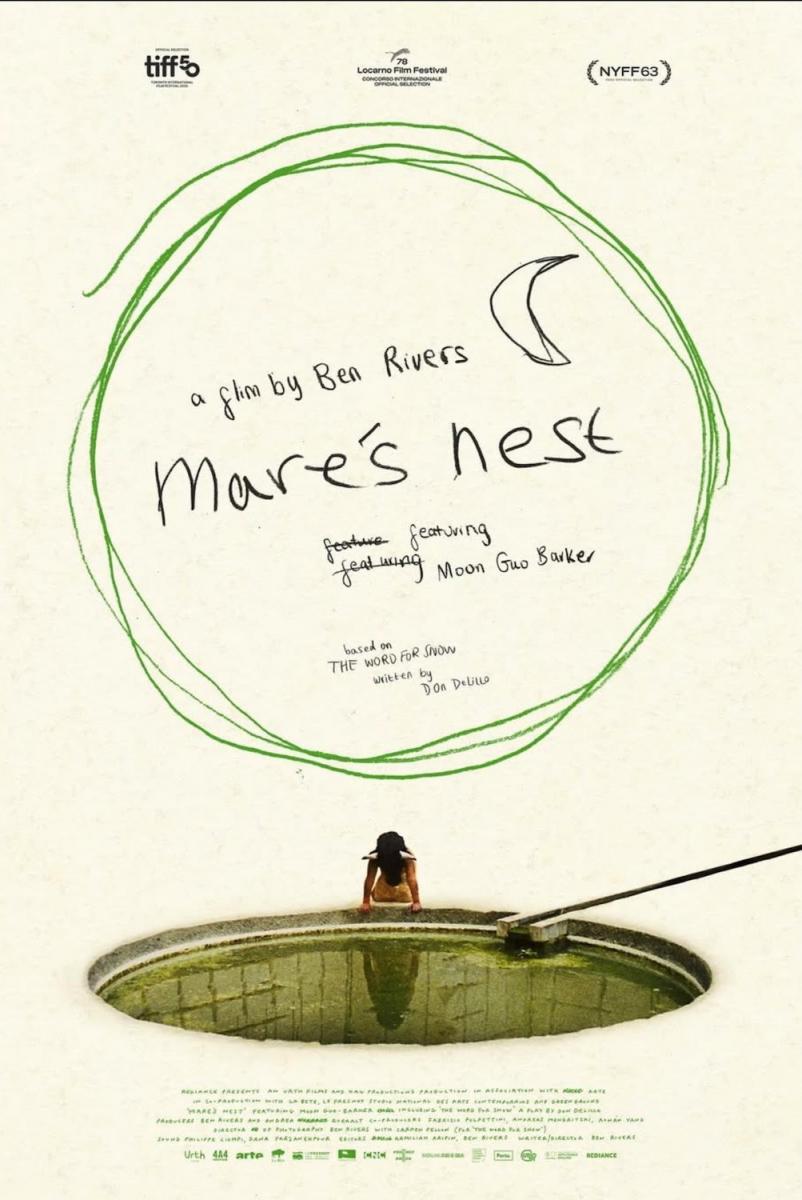 OFFICIAL SELECTION
tiff50
TORONTO INTERNATIONAL
FILM FESTIVAL 2025
78
Locarno Film Festival
CONCORSO INTERNAZIONALE
OFFICIAL SELECTION
NYFF63
2025 OFFICIAL SELECTION
a flim by Ben Rivers
Mare's nest
feature featuring
featuring Moon Guo Barker
based on
THE WORD FOR SNOW
written by
DON DeLILLO
REDIANCE PRESENTS AN URTH FILMS AND PRODUCTIONS PRODUCTION IN ASSOCIATION WITH ARTE
IN CO-PRODUCTION WITH LA BETE, LE FRESNOY STUDIO NATIONAL DES ARTS CONTEMPORAINS AND
'MARE'S NEST' FEATURING MOON GUO-BARKER INCLUDING 'THE WORD FOR SNOW' A PLAY BY DON DELILLO
PRODUCERS BEN RIVERS AND ANDREA QUERALT CO-PRODUCERS FABRIZIO POLPETTINI, ANDREAS
DIRECTOR OF PHOTOGRAPHY BEN RIVERS WITH CARMEN PELLON (FOR 'THE WORD FOR SNOW')
SOUND PHILIPPE CIOMPI, EDITORS BEN RIVERS WRITER/DIRECTOR BEN RIVERS
Urth 4A4 arte CNC REDIANCE